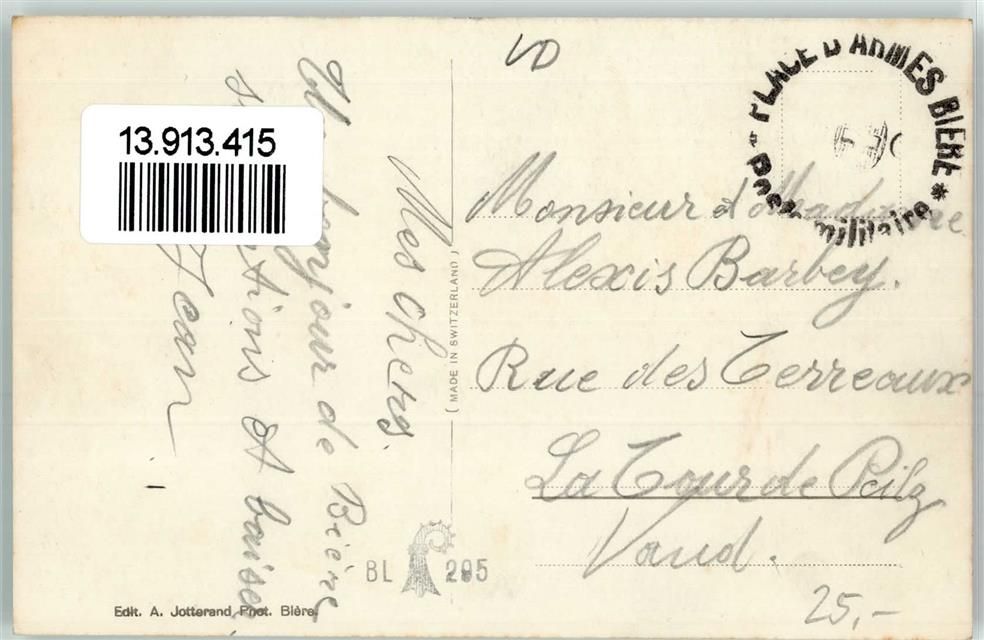 VD
PLACE D'ARMES BIERE *
* Poste militaire
13.913.415
Mes chers.
Un bonjour de Bière
A baisers
Jean
( MADE IN SWITZERLAND )
Monsieur et Madame
Alexis Barbey.
Rue des Terreaux
La Tour de Peilz
Vaud.
BL 295
25,-
Edit. A. Jotterand Phot. Bière.